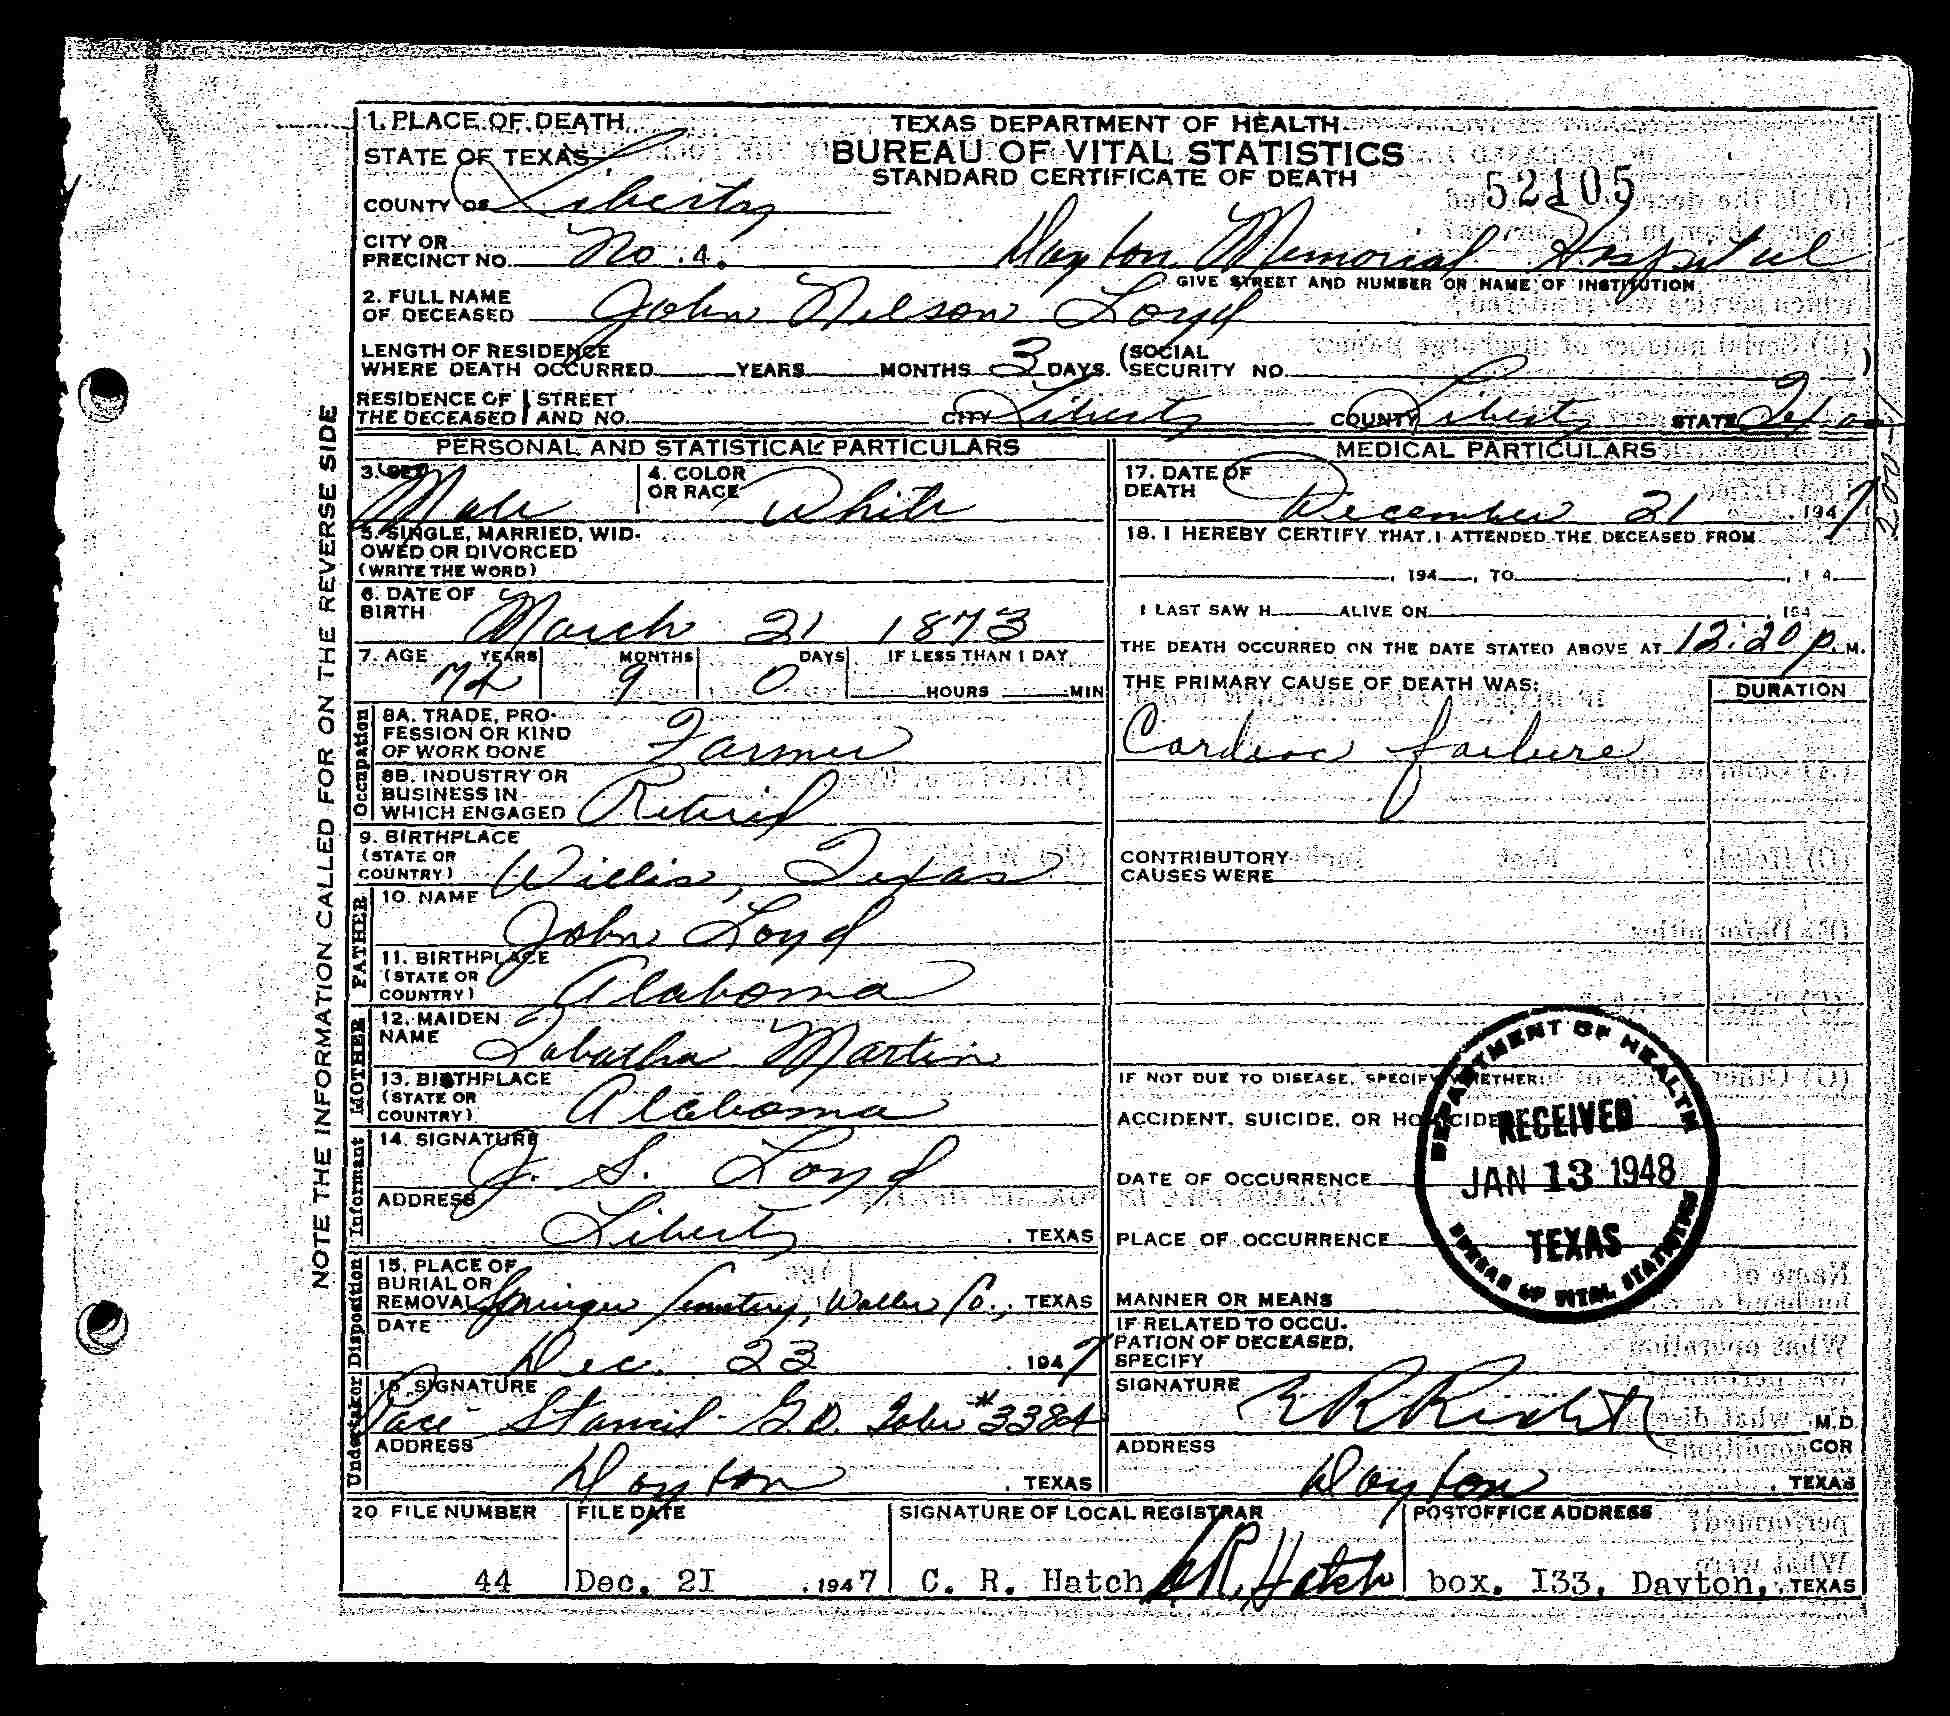 1. PLACE OF DEATH
STATE OF TEXAS
TEXAS DEPARTMENT OF HEALTH
BUREAU OF VITAL STATISTICS
STANDARD CERTIFICATE OF DEATH
52105
COUNTY OF Liberty
CITY OR PRECINCT NO. No. 4. Dayton Memorial Hospital
GIVE STREET AND NUMBER OR NAME OF INSTITUTION
2. FULL NAME OF DECEASED John Nelson Loyd
LENGTH OF RESIDENCE WHERE DEATH OCCURRED YEARS MONTHS 3 DAYS. (SOCIAL SECURITY NO. )
RESIDENCE OF THE DECEASED STREET AND NO. CITY Liberty COUNTY Liberty STATE Texas
NOTE THE INFORMATION CALLED FOR ON THE REVERSE SIDE
PERSONAL AND STATISTICAL PARTICULARS
3. SEX Male
4. COLOR OR RACE White
5. SINGLE, MARRIED, WIDOWED OR DIVORCED
(WRITE THE WORD)
6. DATE OF BIRTH March 21 1873
7. AGE YEARS MONTHS DAYS IF LESS THAN 1 DAY
74 9 0 HOURS MIN
Occupation
8A. TRADE, PROFESSION OR KIND OF WORK DONE Farmer
8B. INDUSTRY OR BUSINESS IN WHICH ENGAGED Retired
9. BIRTHPLACE (STATE OR COUNTRY) Willis, Texas
FATHER
10. NAME John Loyd
11. BIRTHPLACE (STATE OR COUNTRY) Alabama
MOTHER
12. MAIDEN NAME Tabatha Martin
13. BIRTHPLACE (STATE OR COUNTRY) Alabama
Informant
14. SIGNATURE J. S. Loyd
ADDRESS Liberty, TEXAS
Disposition
15. PLACE OF BURIAL OR REMOVAL Springer Cemetery, Waller Co., TEXAS
DATE Dec. 23, 1947
Undertaker
16. SIGNATURE Pace Stancil G.D. #3384
ADDRESS Dayton, TEXAS
MEDICAL PARTICULARS
17. DATE OF DEATH December 21, 1947
18. I HEREBY CERTIFY THAT I ATTENDED THE DECEASED FROM
, 194 , TO , 194
I LAST SAW H ALIVE ON , 194
THE DEATH OCCURRED ON THE DATE STATED ABOVE AT 12:20 P. M.
THE PRIMARY CAUSE OF DEATH WAS: DURATION
Cardiac failure
CONTRIBUTORY CAUSES WERE
IF NOT DUE TO DISEASE, SPECIFY WHETHER:
ACCIDENT, SUICIDE, OR HOMICIDE
DATE OF OCCURRENCE
PLACE OF OCCURRENCE
MANNER OR MEANS
IF RELATED TO OCCUPATION OF DECEASED, SPECIFY
DEPARTMENT OF HEALTH
RECEIVED
JAN 13 1948
TEXAS
BUREAU OF VITAL STATISTICS
SIGNATURE M.D.
ADDRESS COR
Dayton, TEXAS
20 FILE NUMBER FILE DATE SIGNATURE OF LOCAL REGISTRAR POSTOFFICE ADDRESS
44 Dec. 2I, 1947 C. R. Hatch C.R. Hatch box. I33, Dayton, TEXAS